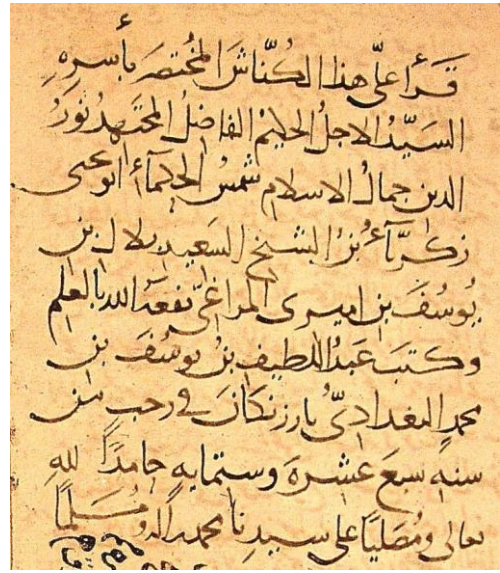 قرأ علي هذا الكُنّاشَ المُختصَر بأسرِهِ
السَيّدُ الاجل الحكيمُ الفاضِلُ المجتهد نورُ
الدين جمالُ الاسلام شمسُ الحكمآءِ ابو يحيى
زكريّآءُ بنُ الشيخ السَعيدِ بلال بن
يُوسُفَ بن اميرى المراغىّ نفعهُ اللهُ بالعلم
وكتبَ عبدُ اللطيفِ بنُ يوسُفَ بن
محمدٍ البغداديّ بارزنكانَ في رجب من
سنهِ سبعَ عشرةَ وستمايهٍ حامدًا للهِ
تعالى ومُصَليًا على سيدِنا محمد وآله ومُسَلّمًا